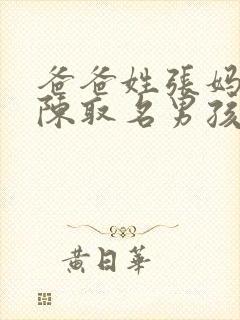 爸爸姓張媽
陳取名男孩
黃日華